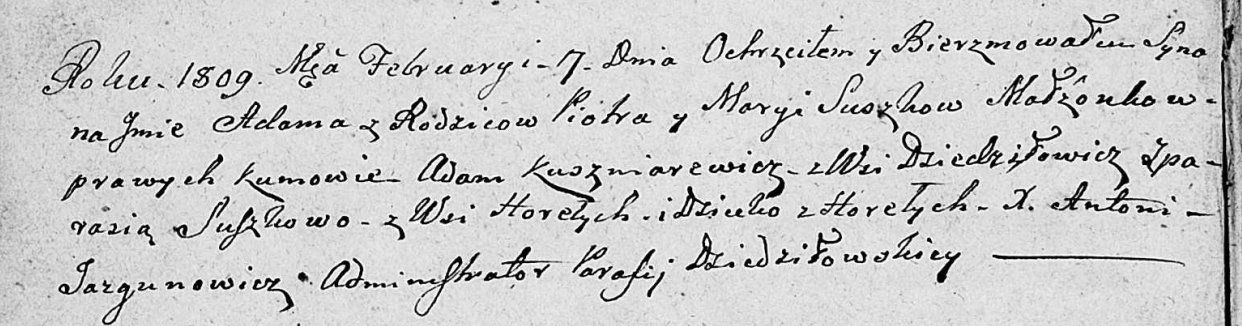 Roku. 1809. Mca Februaryi - 7 - Dnia Ochrzciłem y Bierzmowałem Syna
na Jmie Adama z Rodzicow Piotra y Maryi Suszkow Małżonkow -
prawych kumowie - Adam Kuszniarewicz - z Wsi Dziedziłowicz Zpa-
rasią Suszkowo - z Wsi Horełych - i Dziecko z Horełych - X. Antoni -
Jazgunowicz Administrator Parafij Dziedziłowskiey